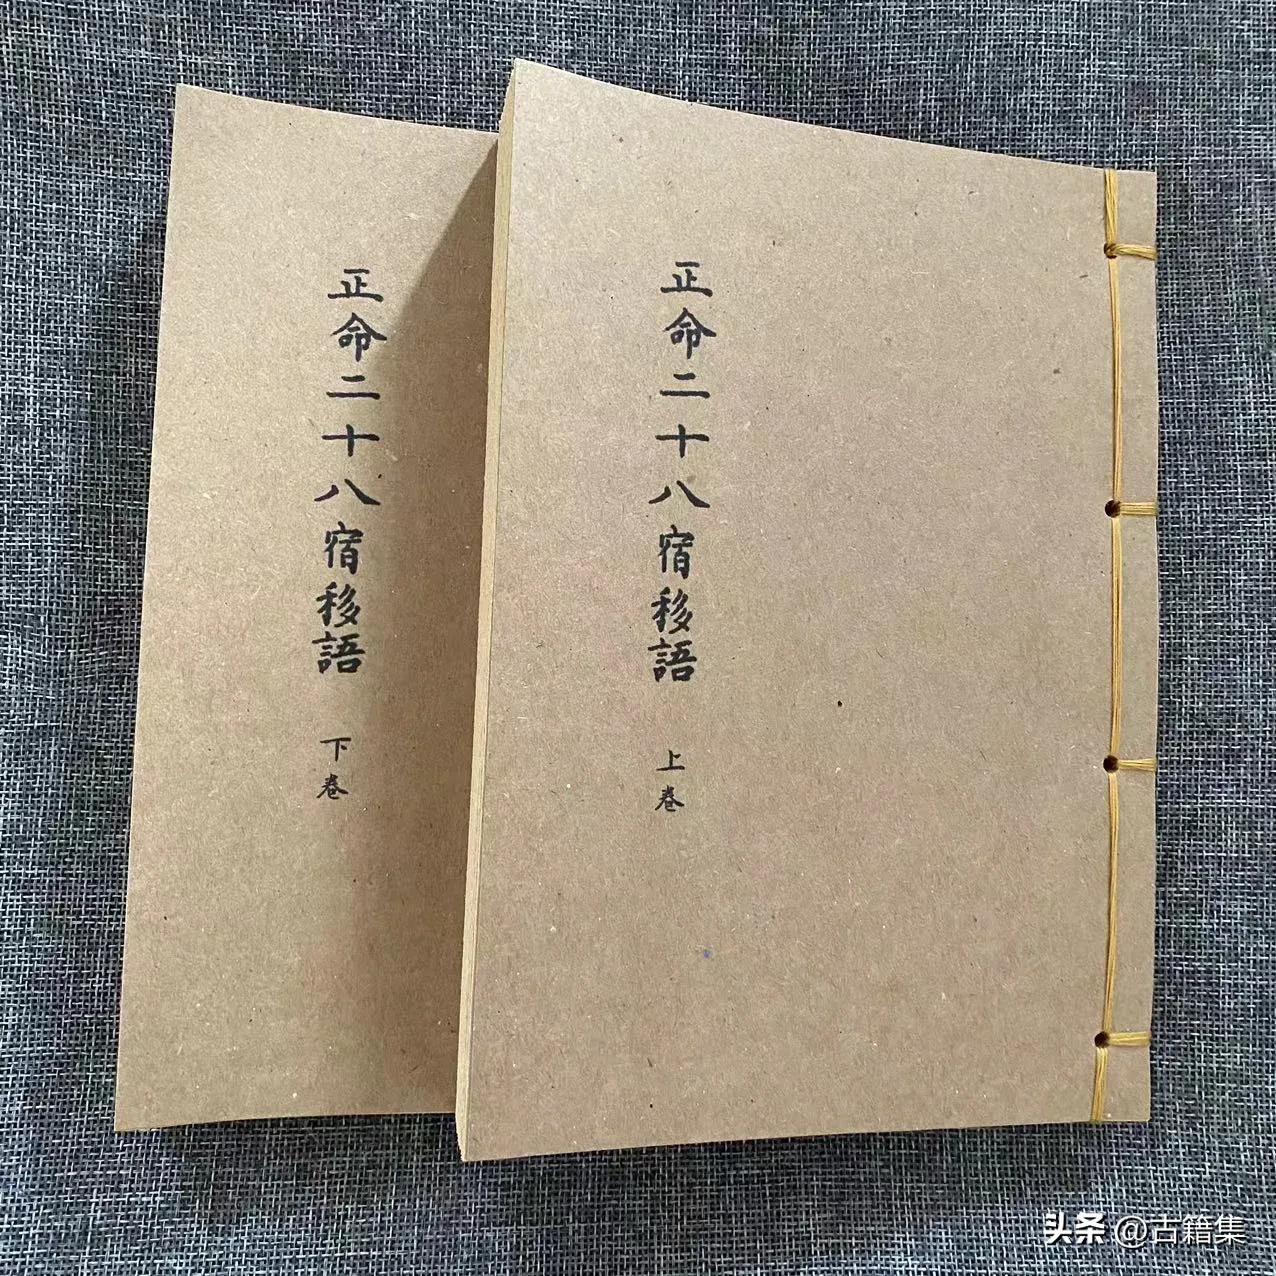 正命二十八宿移語
上卷
正命二十八宿移語
下卷
头条 @古籍集